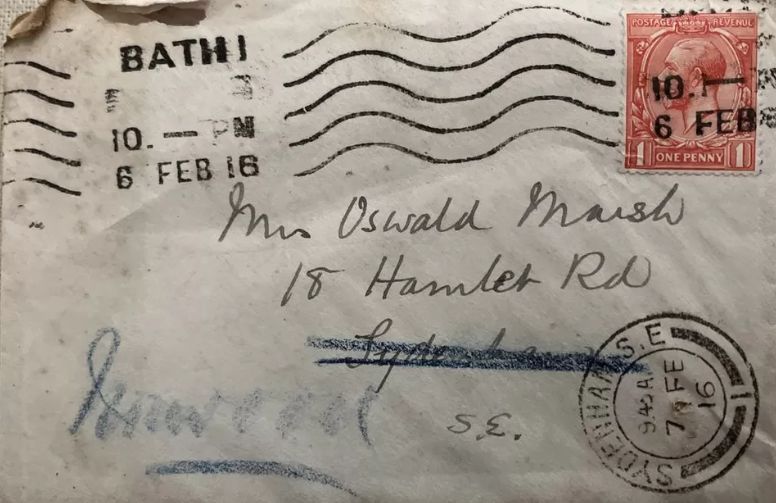 BATH 1
10. — PM
6 FEB 16
POSTAGE REVENUE
10. —
6 FEB
1 ONE PENNY 1
Mrs Oswald Marsh
18 Hamlet Rd
Sydenham
Norwood
S.E.
SYDENHAM S.E
9.45 A
7 FE
16
1